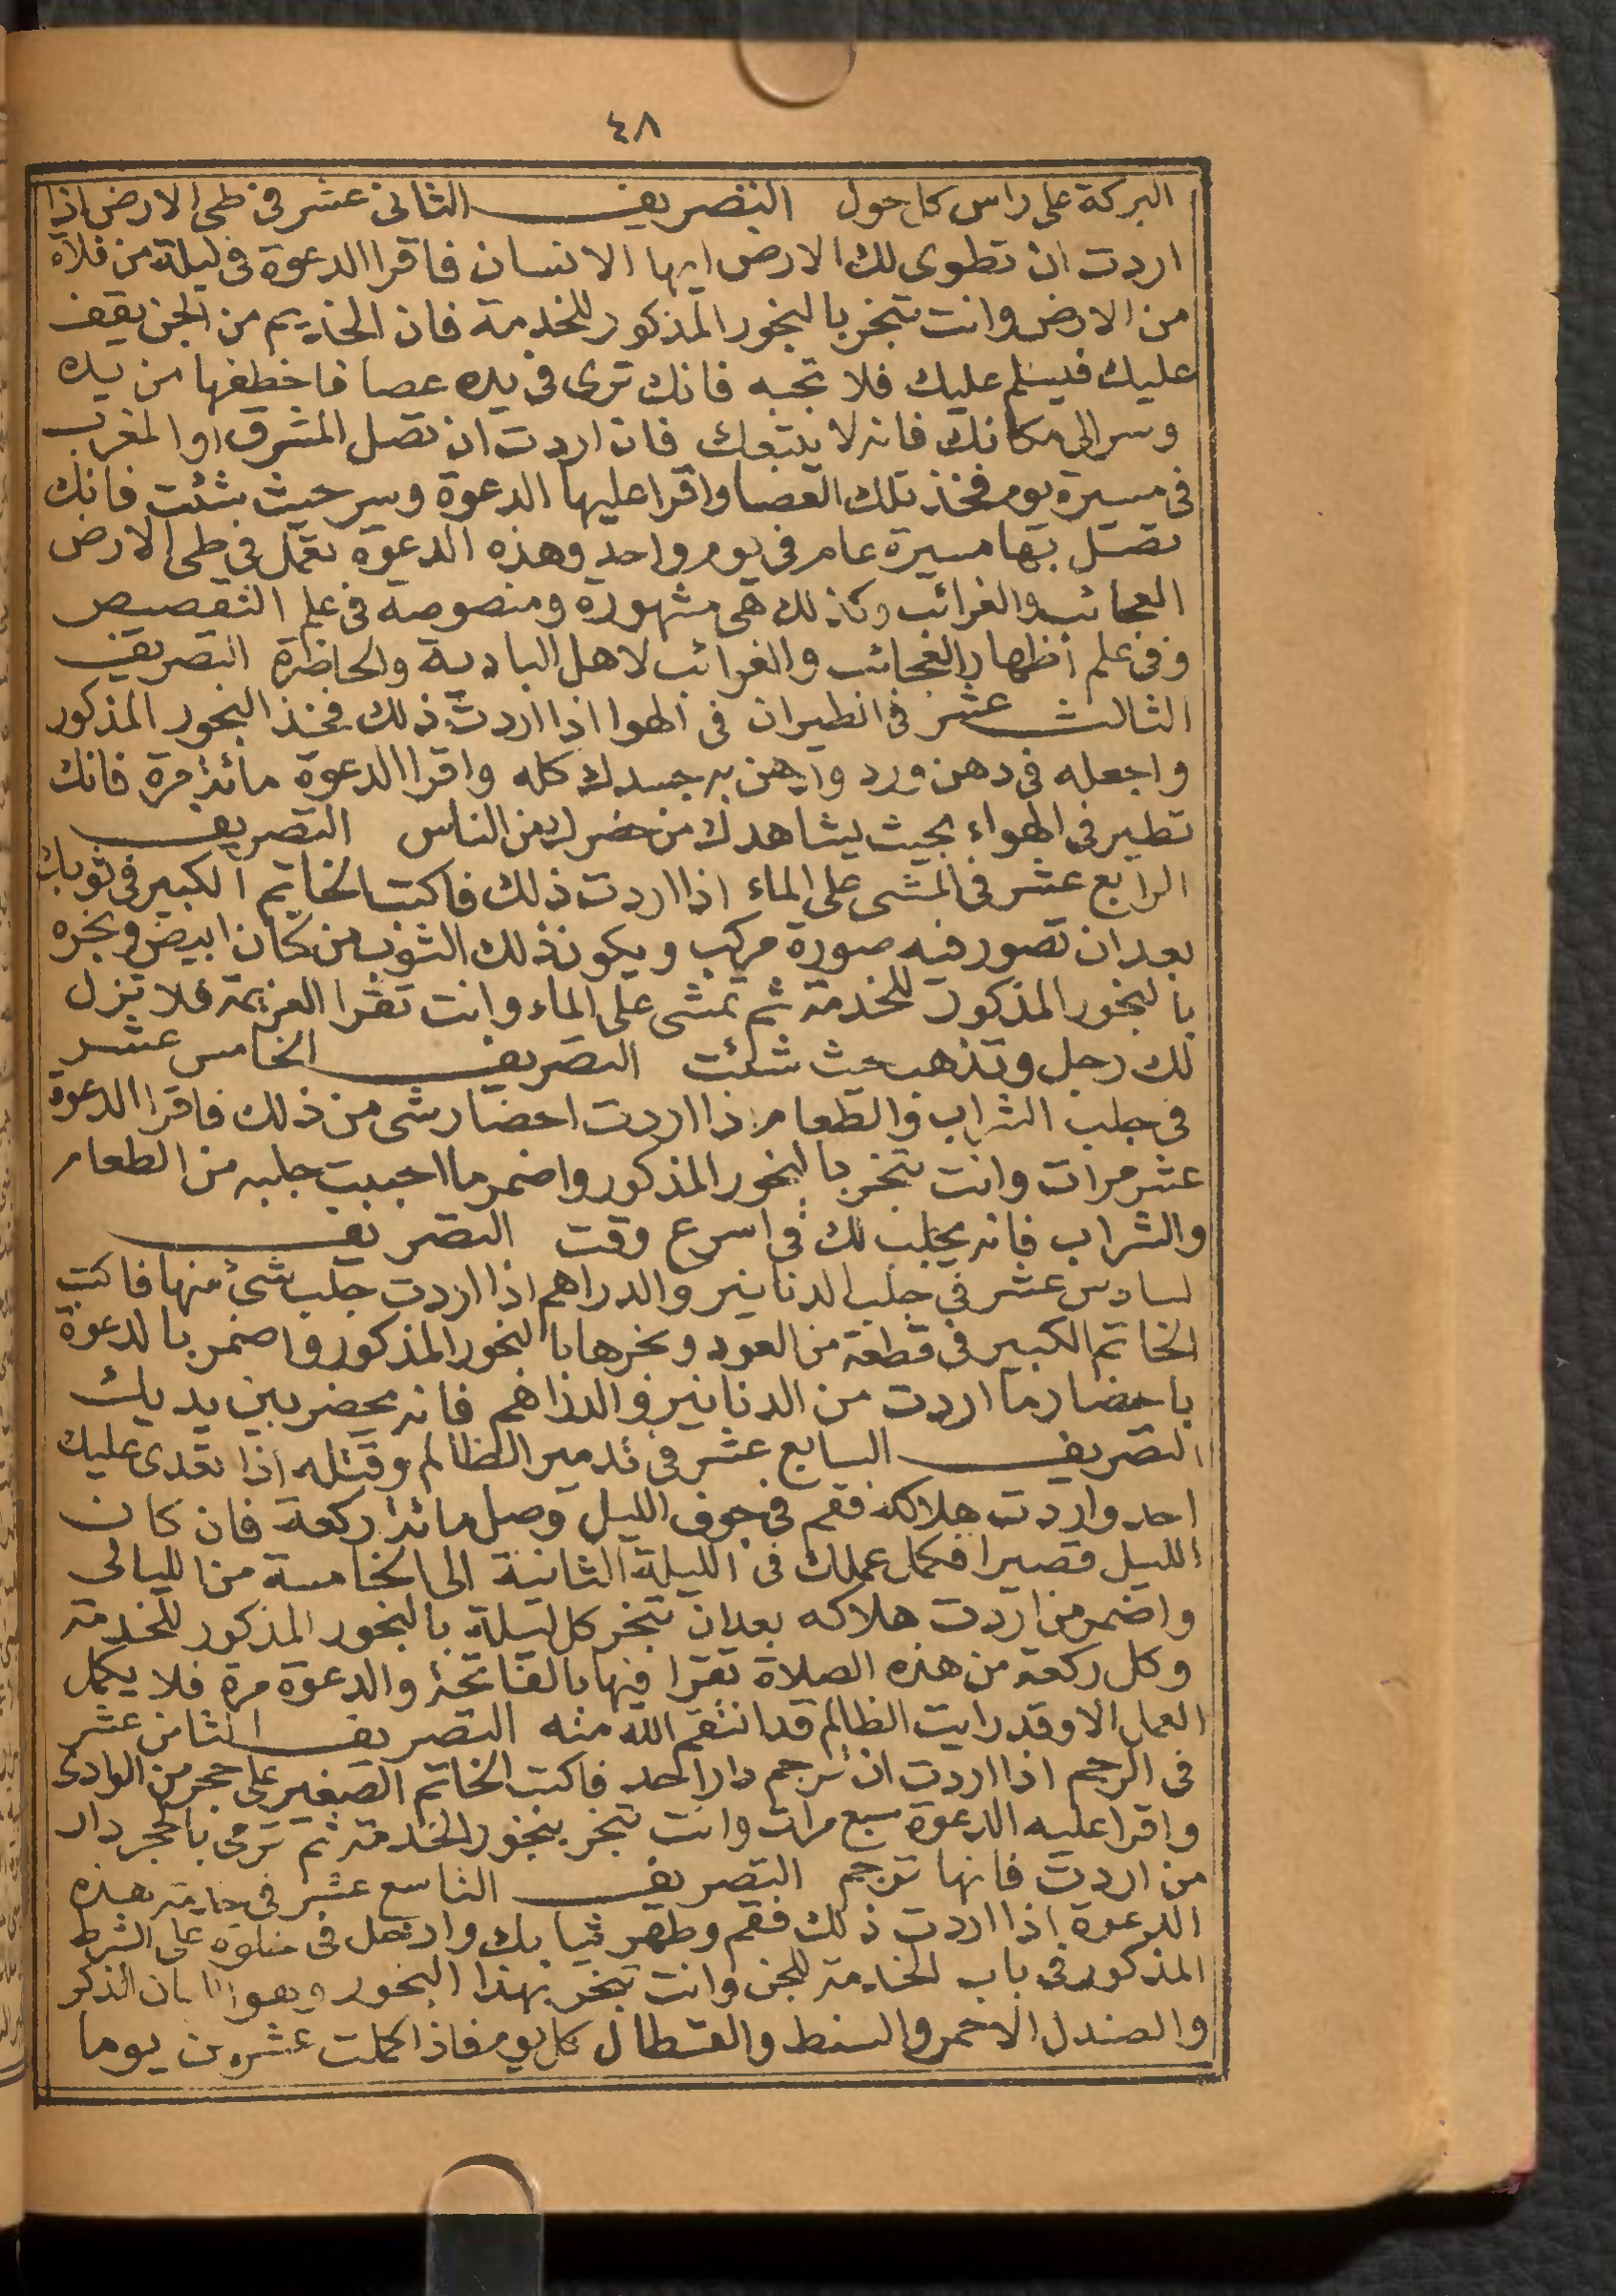 ٤٨
البركة على راس كل حول التصريف الثانى عشر فى طى الارض اذا
اردت ان تطوى لك الارض ايها الانسان فاقرا الدعوة فى ليلة من فلاة
من الارض وانت تبخر بالبخور المذكور للخدمة فان الخديم من الجن يقف
عليك فيسلم عليك فلا تجبه فانك ترى فى يده عصا فاخطفها من يده
وسر الى مكانك فانه لا يتبعك فان اردت ان تصل المشرق او المغرب
فى مسيرة يوم فخذ تلك العصا واقرا عليها الدعوة وسر حيث شئت فانك
تصل بها مسيرة عام فى يوم واحد وهذه الدعوة تعمل فى طى الارض
العجائب والغرائب وكذلك هى مشهورة ومنصوصة فى علم التقصيص
وفى علم اظهار العجائب والغرائب لاهل البادية والحاظرة التصريف
الثالث عشر فى الطيران فى الهوا اذا اردت ذلك فخذ البخور المذكور
واجعله فى دهن ورد وادهن به جسدك كله واقرا الدعوة مائة مرة فانك
تطير فى الهواء بحيث يشاهدك من حضرك من الناس التصريف
الرابع عشر فى المشى على الماء اذا اردت ذلك فاكتب الخاتم الكبير فى ثوبك
بعد ان تصور فيه صورة مركب ويكون ذلك الثوب من كتان ابيض وبخره
بالبخور المذكور للخدمة ثم تمشى على الماء وانت تقرا العزيمة فلا تزل
لك رجل وتذهب حيث شئت التصريف الخامس عشر
فى جلب الشراب والطعام اذا اردت احضار شى من ذلك فاقرا الدعوة
عشر مرات وانت تبخر بالبخور المذكور واضمر ما احببت جلبه من الطعام
والشراب فانه يجلب لك فى اسرع وقت التصريف
لسادس عشر فى جلب الدنانير والدراهم اذا اردت جلب شئ منها فاكتب
الخاتم الكبير فى قطعة من العود وبخرها بالبخور المذكور واضمر بالدعوة
باحضار ما اردت من الدنانير والدراهم فانه يحضر بين يديك
التصريف السابع عشر فى تدمير الظالم وقتله اذا تعدى عليك
احد واردت هلاكه فقم فى جوف الليل وصل مائة ركعة فان كان
الليل قصيرا فكمل عملك فى الليلة الثانية الى الخامسة من الليالى
واضمر من اردت هلاكه بعد ان تبخر كل ليلة بالبخور المذكور للخدمة
وكل ركعة من هذه الصلاة تقرا فيها بالفاتحة والدعوة مرة فلا يكمل
العمل الا وقد رايت الظالم قد انتقم الله منه التصريف الثامن عشر
فى الرجم اذا اردت ان ترجم دار احد فاكتب الخاتم الصغير على حجر من الوادى
واقرا عليه الدعوة سبع مرات وانت تبخر ببخور الخدمة ثم ترمى بالحجر دار
من اردت فانها ترجم التصريف التاسع عشر فى هذه
الدعوة اذا اردت ذلك فقم وطهر ثيابك وادخل فى خلوة على الشرط
المذكور فى باب الخدمة للجن وانت تبخر بهذا البخور وهو اللبان الذكر
والصندل الاحمر والسنط والقسطال كل يوم فاذا كملت عشرين يوما